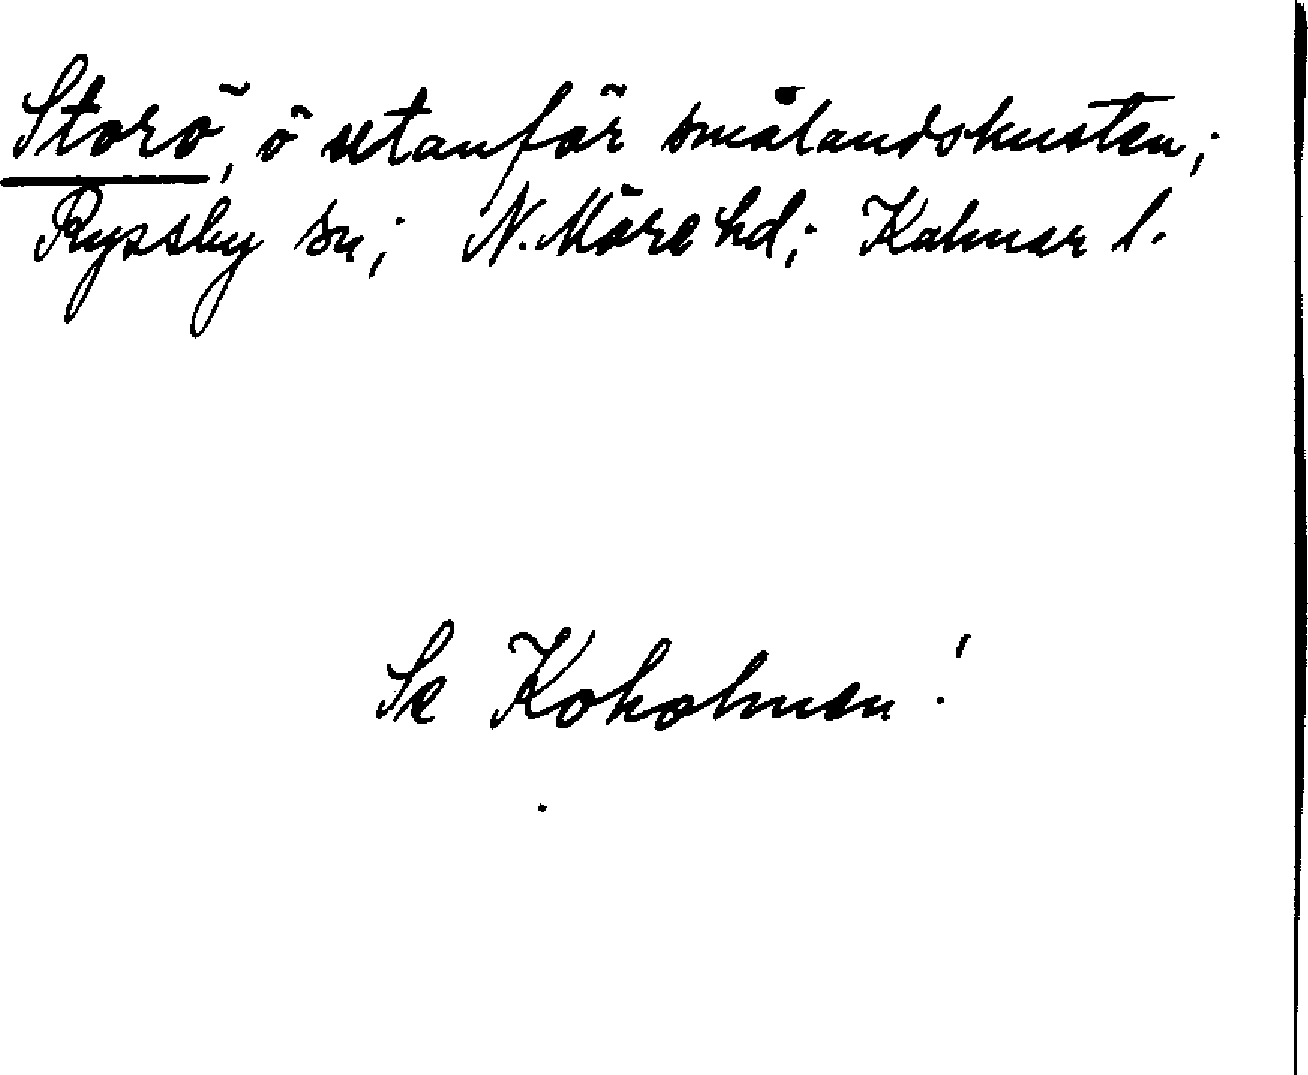 Storö, ö utanför smålandskusten;
Ryssby sn; N. Möre hd; Kalmar l.
Se Koholmen!